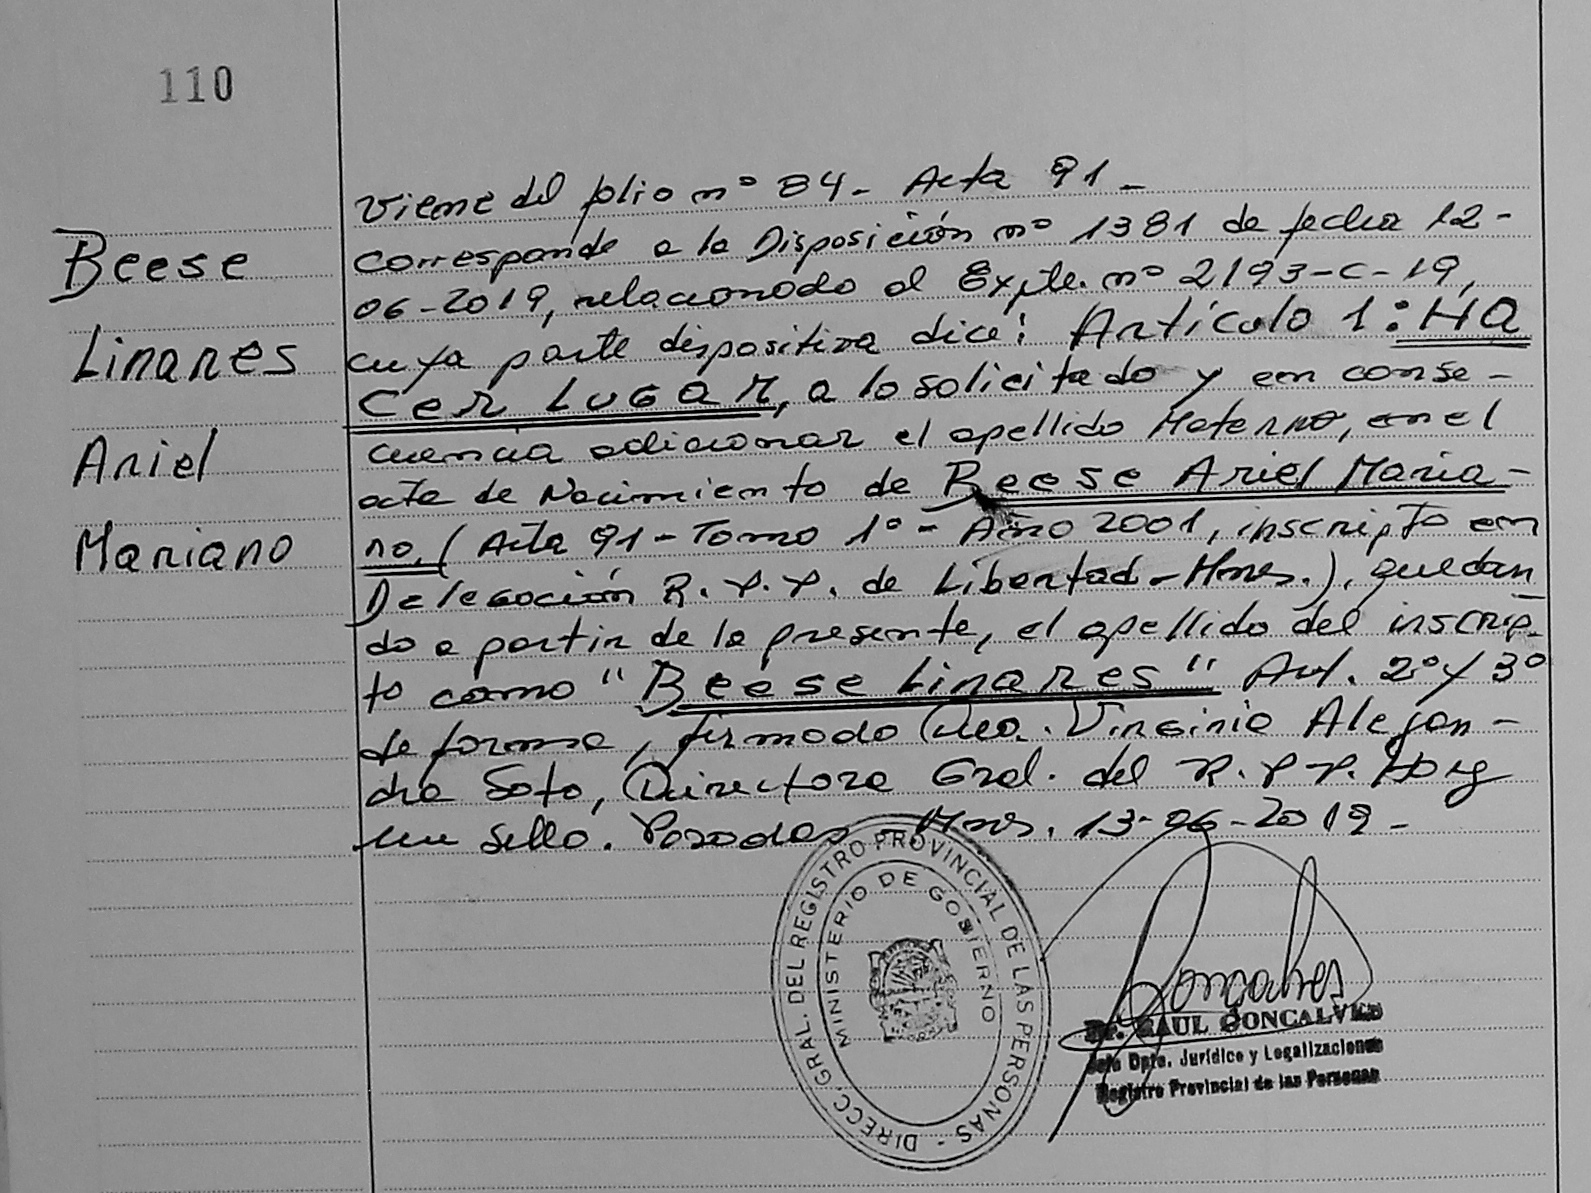 110
Beese
Linares
Ariel
Mariano
Viene del folio nº 84- Acta 91-
corresponde a la Disposición nº 1381 de fecha 12-
06-2019, relacionado al Expte. nº 2193-C-19,
cuya parte dispositiva dice: Artículo 1: HA
CER LUGAR, a lo solicitado y en conse-
cuencia adicionar el apellido Materno, en el
acta de Nacimiento de Beese Ariel Maria-
no. (Acta 91-Tomo 1º- Año 2001, inscripto en
Delegación R.P.P. de Libertad-Mnes.), quedan
do a partir de la presente, el apellido del inscrip-
to como "Beese Linares" Art. 2º y 3º
de forma, firmado Virginia Alejan-
dra Soto, Directora Gral. del R.P.P. Hay
un sello. Posadas Mnes. 13-06-2019-
DIRECC. GRAL. DEL REGISTRO PROVINCIAL DE LAS PERSONAS -
MINISTERIO DE GOBIERNO
Goncalves
Dr. RAUL GONCALVES
Jefe Dpto. Jurídico y Legalizaciones
Registro Provincial de las Personas